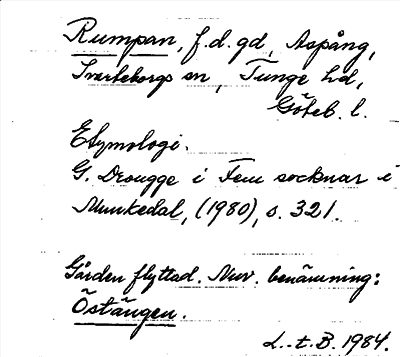 Rumpan, f.d. gd, Aspång,
Svarteborgs sn, Tunge hd,
Göteb. l.
Etymologi.
G. Drougge i Fem socknar i
Munkedal, (1980), s. 321.
Gården flyttad. Nuv. benämning:
Östängen.
L.-t.B. 1984.